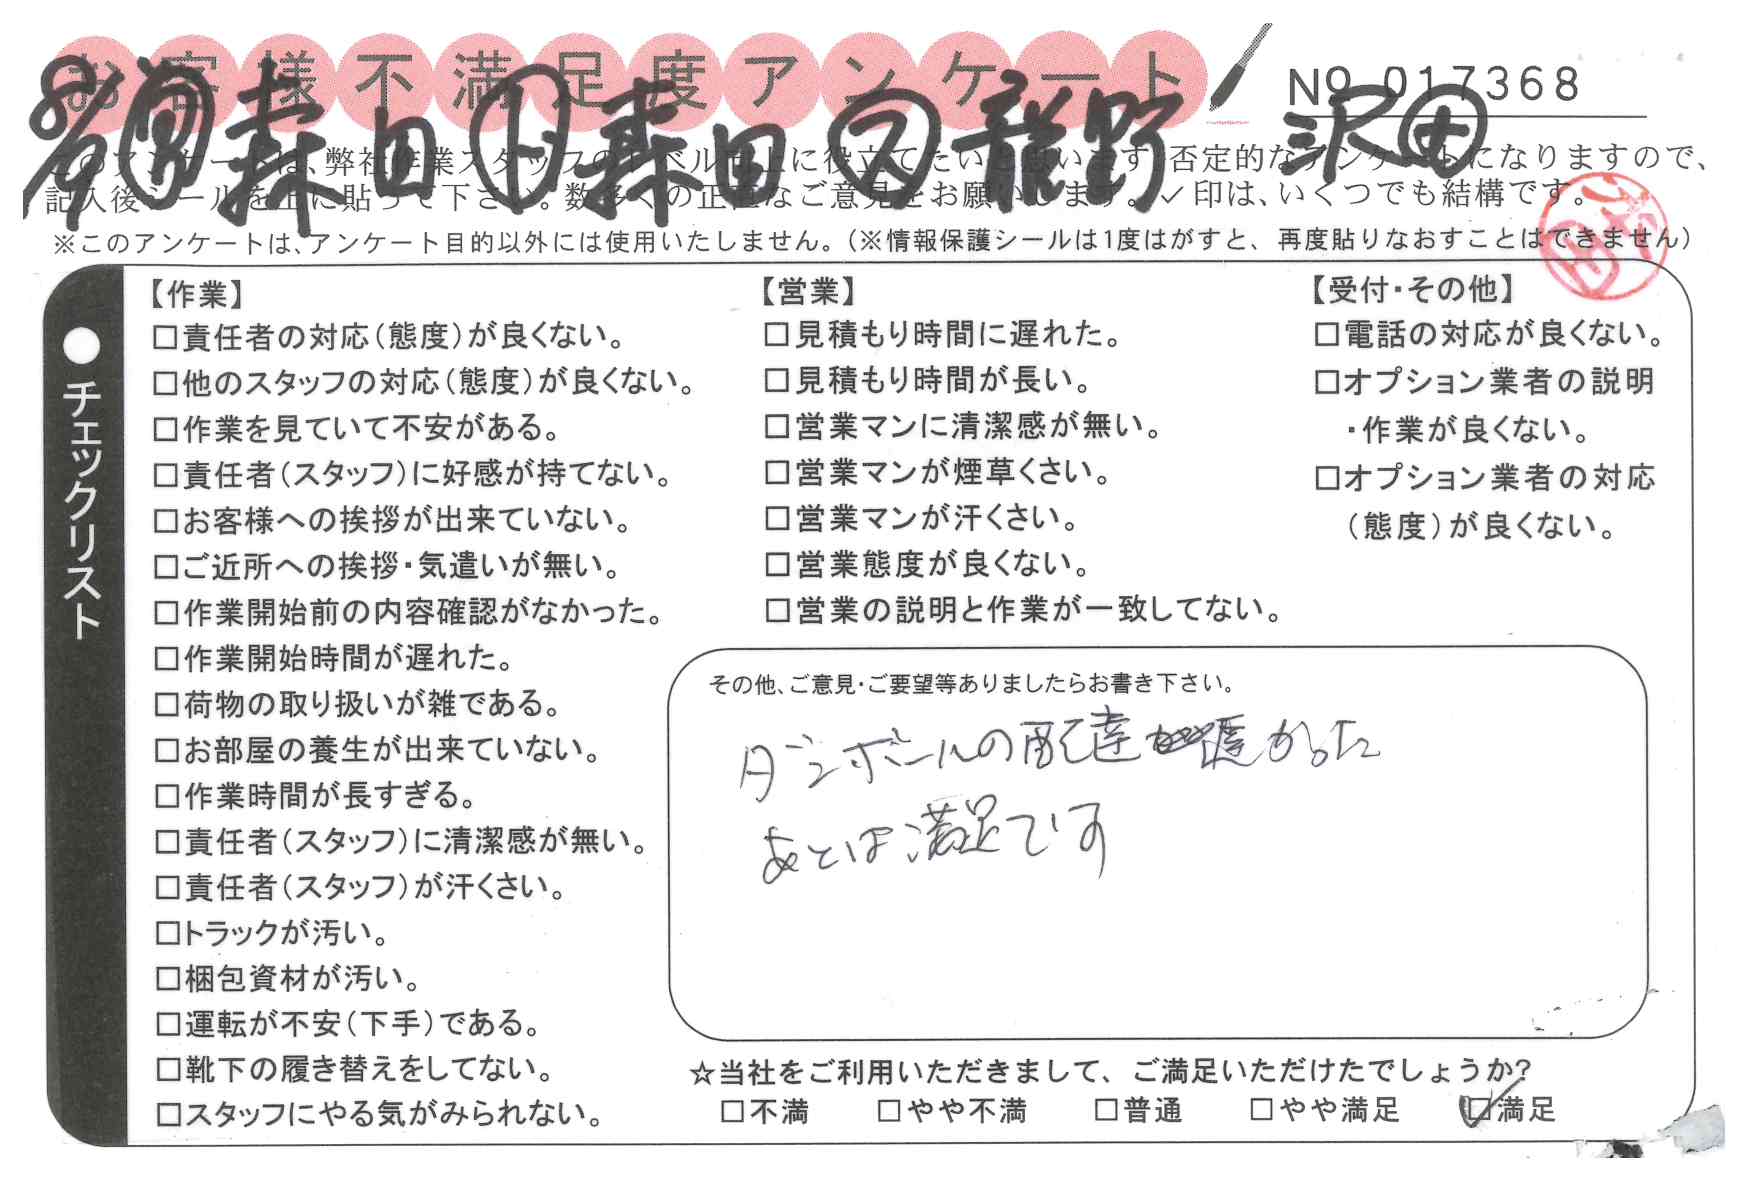 お客様不満足度アンケート
No 017368
8/9 森田 森田 龍野 沢田
このアンケートは、弊社作業スタッフのレベル向上に役立てたいと思います。否定的なアンケートになりますので、
記入後シールを上に貼って下さい。数多くの正直なご意見をお願いします。✓印は、いくつでも結構です。
※このアンケートは、アンケート目的以外には使用いたしません。(※情報保護シールは1度はがすと、再度貼りなおすことはできません)
●チェックリスト
【作業】
□責任者の対応(態度)が良くない。
□他のスタッフの対応(態度)が良くない。
□作業を見ていて不安がある。
□責任者(スタッフ)に好感が持てない。
□お客様への挨拶が出来ていない。
□ご近所への挨拶・気遣いが無い。
□作業開始前の内容確認がなかった。
□作業開始時間が遅れた。
□荷物の取り扱いが雑である。
□お部屋の養生が出来ていない。
□作業時間が長すぎる。
□責任者(スタッフ)に清潔感が無い。
□責任者(スタッフ)が汗くさい。
□トラックが汚い。
□梱包資材が汚い。
□運転が不安(下手)である。
□靴下の履き替えをしてない。
□スタッフにやる気がみられない。
【営業】
□見積もり時間に遅れた。
□見積もり時間が長い。
□営業マンに清潔感が無い。
□営業マンが煙草くさい。
□営業マンが汗くさい。
□営業態度が良くない。
□営業の説明と作業が一致してない。
【受付・その他】
□電話の対応が良くない。
□オプション業者の説明
・作業が良くない。
□オプション業者の対応
(態度)が良くない。
その他、ご意見・ご要望等ありましたらお書き下さい。
ダンボールの配達 遅かった
あとは満足です
☆当社をご利用いただきまして、ご満足いただけたでしょうか?
□不満 □やや不満 □普通 □やや満足 ☑満足